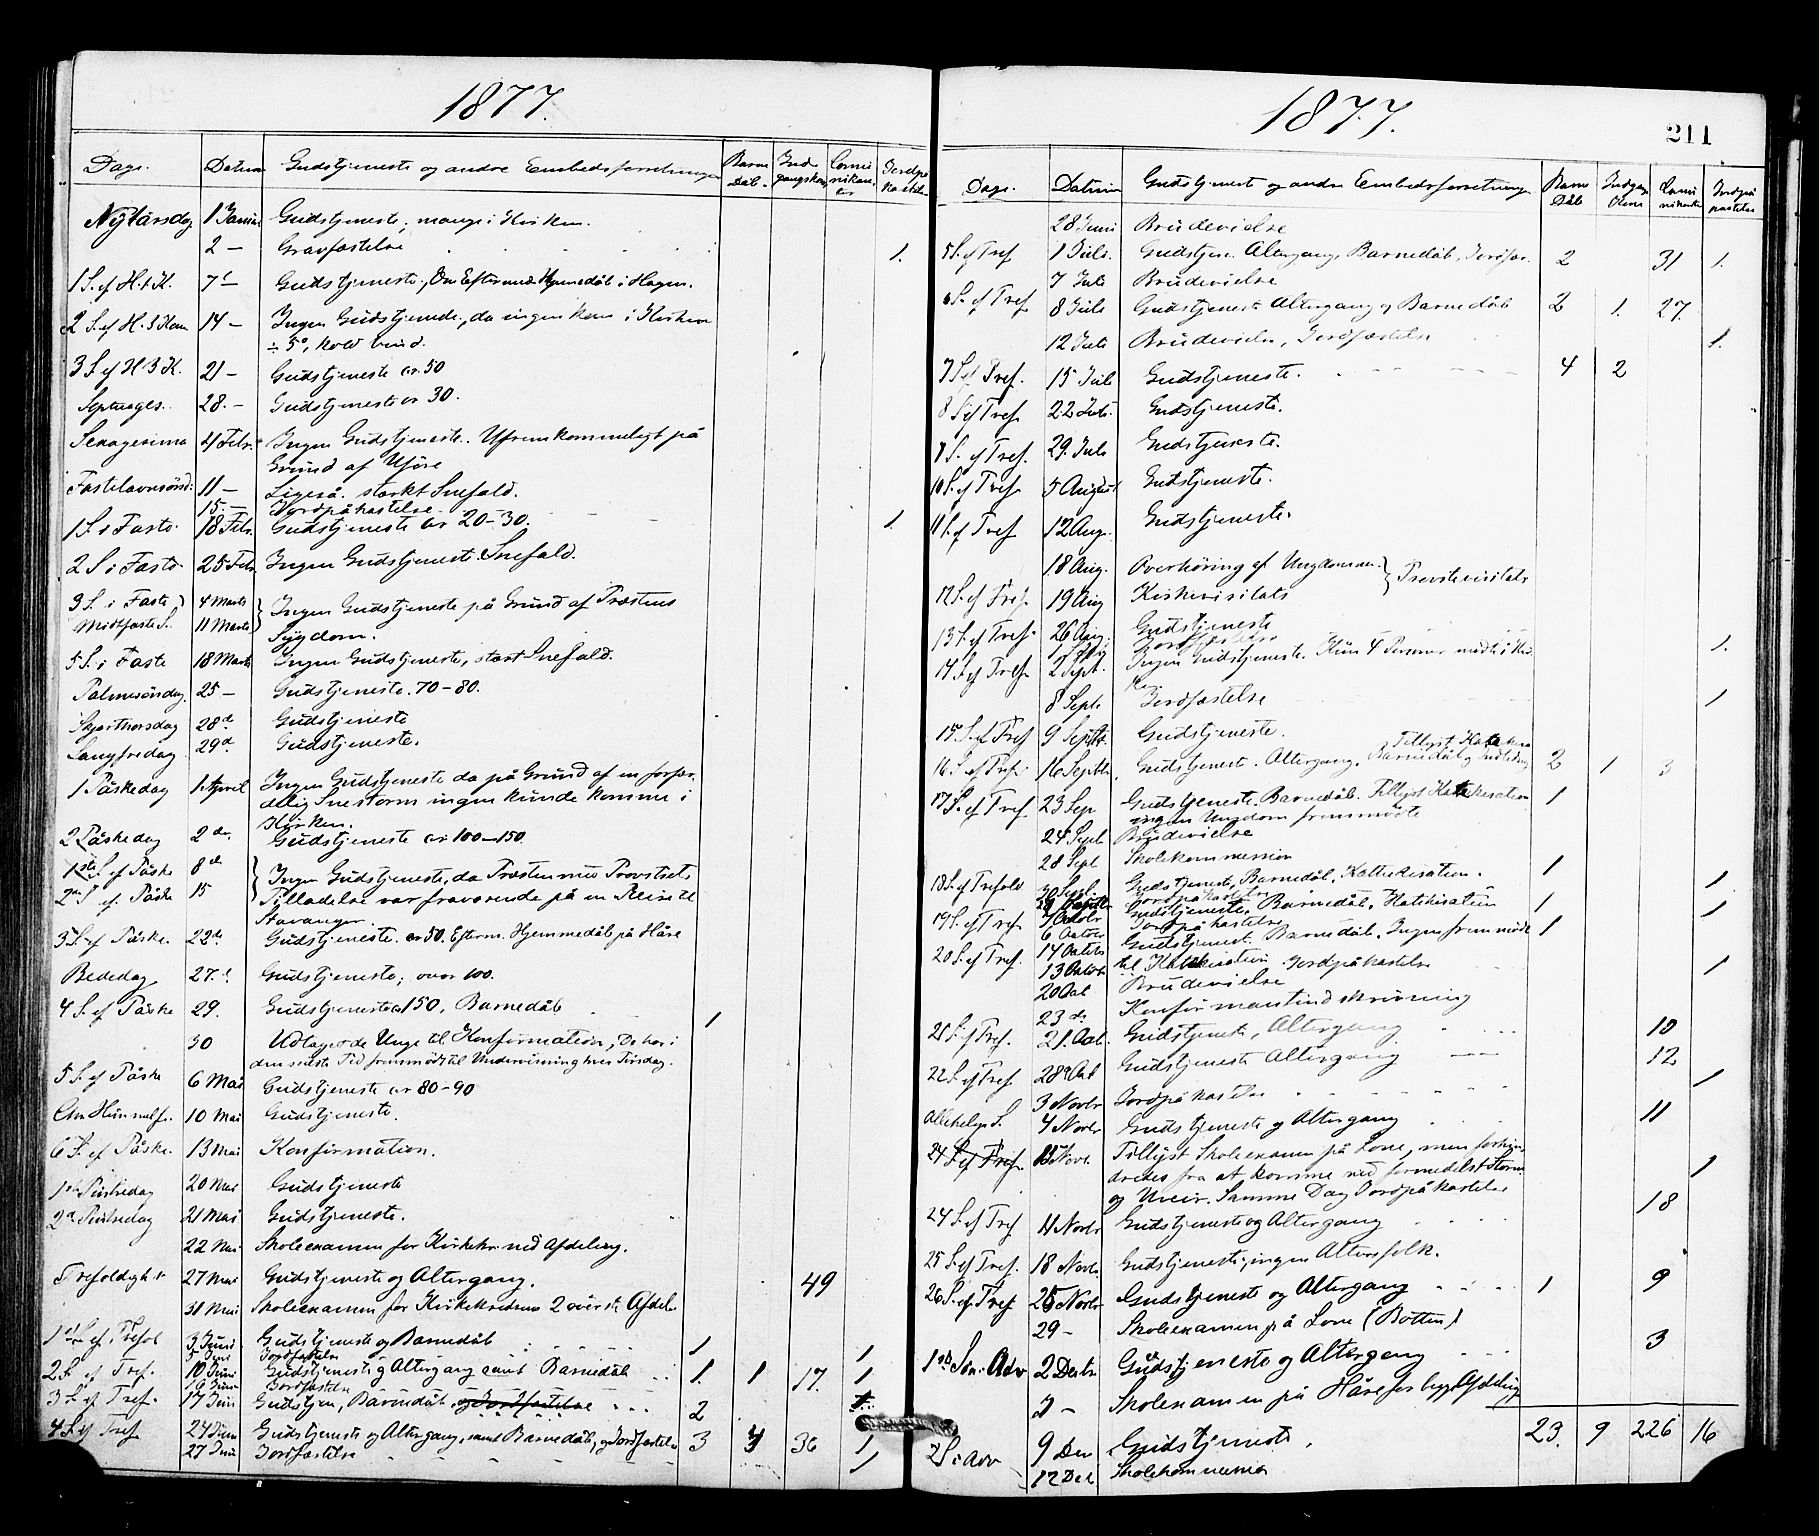 1877.
Dage. Datum Gudstjeneste og andre Embedsforretninger Barne Dåb. Ind gangskon Comunikanter Jordpåkastelse
Nytårsdag 1 Januar Gudstjeneste, mange i Kirken.
2 — Gravfæstelse 1.
1 S. ef H.3.K. 7de — Gudstjeneste, Om Efterm Hjemmedåb i Hagen.
2 S. ef H.3 Kon 14 — Ingen Gudstjeneste, da ingen kom i Kirken
÷ 5°, kold vind.
3 S. ef H.3 K. 21 — Gudstjeneste cr 50
Septuages. 28. — Gudstjeneste cr 30.
Sexagesima 4 Febr. Ingen Gudstjeneste. Ufremkommeligt på
Grund af Uføre
Fastelavnsønsd. 11 — Ligeså. stærkt Snefald.
15. — Jordpåkastelse
1 S. i Faste. 18 Febr. Gudstjeneste cr 20-30. 1.
2 S. i Faste. 25 Febr. Ingen Gudstjeneste. Snefald.
3 S. i Faste 4 Marts Ingen Gudstjeneste på Grund af Præstens
Midtfaste S. 11 Marts Sygdom.
5 S. i Faste 18 Marts Ingen Gudstjeneste, stært Snefald.
Palmesøndag 25 — Gudstjeneste. 70-80.
Skjærthorsdag 28d Gudstjeneste
Langfredag 29d. Gudstjeneste.
1 Påskedag 1 April Ingen Gudstjeneste da på Grund af en forfær
delig Snestorm ingen kunde komme i
Kirken.
2 Påskedag 2 de. Gudstjeneste cr 100-150.
1ste S. ef Påske 8de Ingen Gudstjeneste, da Præsten med Provstiets
2den S. ef Påske 15 Tilladelse var fraværende på en Reise til
Stavanger
3 S. ef Påske. 22de Gudstjeneste. cr 50. Efterm. Hjemmedåb på Håre
Bededag 27.d Gudstjeneste, over 100.
4 S. ef Påske 29. Gudstjeneste cr 150, Barnedåb 1
30 Udtagne de Unge til Konfirmation, De har i
den sidste Tid fremmødt til Undervisning hver Tirsdag.
5 S. ef Påske 6 Mai Gudstjeneste cr 80-90
Chr Himmelf. 10 Mai Gudstjeneste.
6 S. ef Påske. 13 Mai Konfirmation.
1ste Pintsedag 20 Mai Gudstjeneste
2d Pintsedag 21 Mai Gudstjeneste.
22 Mai Skoleexamen for Kirkekr. ned Afdeling.
Trefoldigh. 27 Mai Gudstjeneste og Altergang. 49
31 Mai Skoleexamen for Kirkekredsens 2 øverste Afdel.
1ste S. ef. Trefol 3 Juni Gudstjeneste og Barnedåb 1
5 Juni Jordfæstelse 1
2 S. ef Tref. 10 Juni Gudstjeneste og Altergang samt Barnedåb 1 1 17. 1
Jordfæstelse
3 S. ef Tref. 17 Juni Gudstjen, Barnedåb og Jordfæstelse 2
4 S. ef Tref 24 Juni Gudstjeneste og Altergang, samt Barnedåb, og Jordfæstelse 3 36 1
27 Juni Jordfæstelse 1
1877.
211
Dage. Datum Gudstjeneste og andre Embedsforretninger Barne Dåb Indgangs Kone Comunikanter Jordpåkastelse
28 Juni Brudevielse
5 S. ef Tref 1 Juli. Gudstjen. Altergang, Barnedåb, Jordfæs. 2 31 1.
7 Juli Brudevielse
6 S. ef Tref 8 Juli Gudstjenest. Altergang og Barnedåb 2 1. 27.
12 Juli Brudevielse, Jordfæstelse 1.
7 S. ef Tref. 15 Juli Gudstjeneste. 4 2
8 S. ef Tref 22 Juli. Gudstjeneste.
8 S. ef Tref. 29. Juli Gudstjeneste.
10 S. ef Tref 5 August Gudstjeneste.
11 S. ef Tref 12 Aug. Gudstjeneste.
18 Aug. Overhøring af Ungdommen. Provstevisitats
12 S. ef Tref. 19 Aug Kirkevisitats
13 S. ef Tref. 26 Aug. Gudstjeneste
Jordfæstelse 1.
14 S. ef Tref. 2 Sept. Ingen Gudstjeneste. Kun 4 Personer mødte i Kir
ke
8 Sept. Jordfæstelse 1
15 S. ef Tref 9 Septbr. Gudstjeneste.
16 S. ef Tref. 16 Septbr. Gudstjenest. Altergang. Barnedåb og Tillyst Katekisa 2 1 3
17 S. ef Tref 23 Sep Gudstjeneste. Barnedåb. Tillyst Katekisation 1
ingen Ungdom fremmødte
24 Sept Brudevielse
28 Sept Skolekommission
18 S. ef Trefold 30 Sept. Gudstjeneste, Barnedåb, Katekisation. 1
Jordpåkastelse 1
19 S. ef Tref 7 Octobr Gudstjeneste, Barnedåb, Katekisation 1
6 October Jordpåkastelse 1
20 S. ef Tref. 14 October Gudstjenest. Barnedåb. Ingen fremmødte 1
13 October til Katekisation. Jordpåkastelse 1
20 Oct Brudevielse
23 de Konfirmantindskrivning
21 S. ef Tref. 21. Oct. Gudstjeneste, Altergang 10
22 S. ef Tref 28 Oct Gudstjeneste Altergang 12
3 Novbr Jordpåkastelse 1
Allehelgn S. 4 Novbr Gudstjeneste og Altergang 11
24 S. ef Tref. Novr. Tillyst Skoleexamen på Lone, men forhin
dredes fra at komme ned formedelst Storm 1
og Uveir. Samme Dag Jordpåkastelse
24 S. ef Tref 11 Novbr Gudstjeneste og Altergang 18
25 S. ef Tref. 18 Novbr. Gudstjeneste, ingen Altersfolk.
26 S. ef Tref 25 Novbr Gudstjeneste og Altergang 1 9
29 — Skoleexamen på Lone (Botten)
1ste Søn. Adv 2 Decbr Gudstjeneste og Altergang 3
7 — Skoleexamen på Håre for begg Afdeling
23. 9 226 16
2 S. i Adv 9 Dec Gudstjeneste.
12 Dec Skolekommission